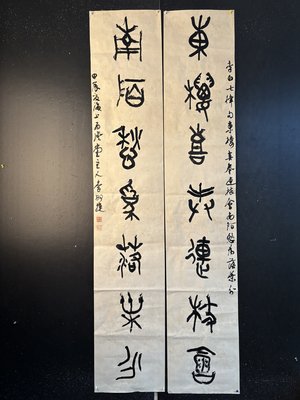 李白七律句東樓喜奉連枝會南陌愁為落葉分
東樓喜奉連枝會
南陌愁為落葉分
甲辰海上堂主人李